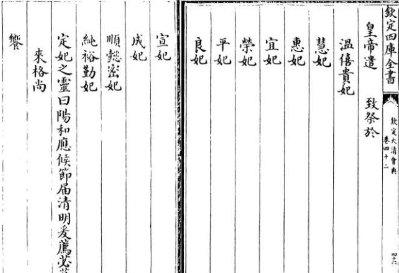 欽定四庫全書
欽定大清會典
卷四十二
皇帝遣　致祭於
溫僖貴妃
慧妃
惠妃
宜妃
榮妃
平妃
良妃
宣妃
成妃
順懿密妃
純裕勤妃
定妃之靈曰陽和應候節届清明爰薦苾
來格尚
饗